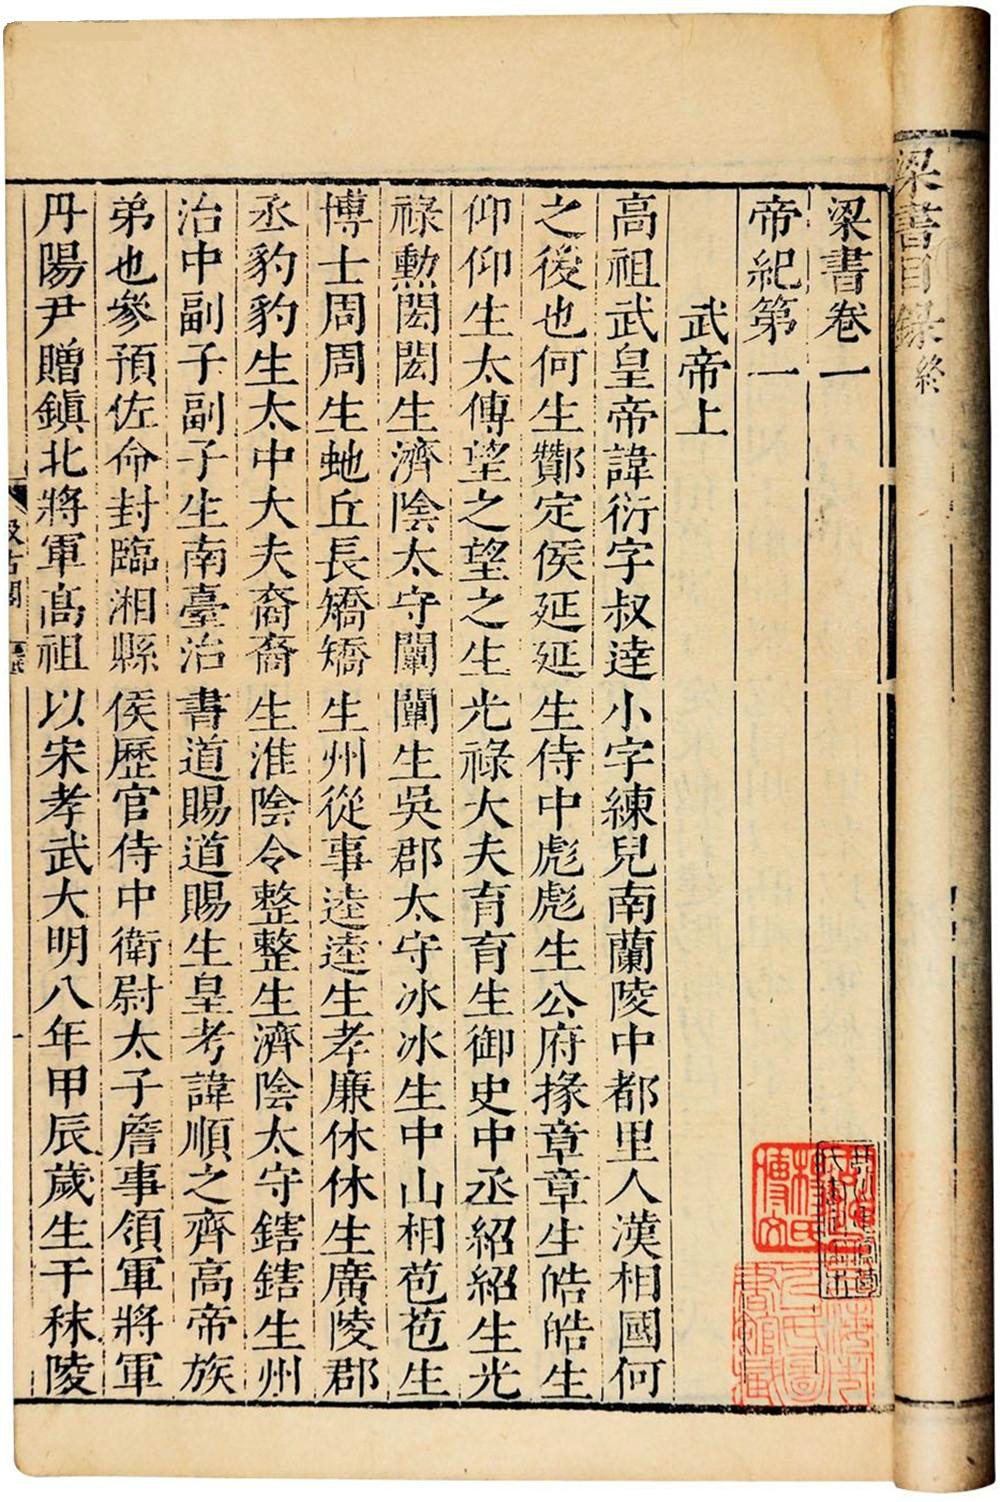 梁書目錄終
梁書卷一
帝紀第一
武帝上
高祖武皇帝諱衍字叔達小字練兒南蘭陵中都里人漢相國何
之後也何生酇定侯延延生侍中彪彪生公府掾章章生皓皓生
仰仰生太傅望之望之生光祿大夫育育生御史中丞紹紹生光
祿勲閎閎生濟陰太守闡闡生吳郡太守冰冰生中山相苞苞生
博士周周生虵丘長矯矯生州從事逵逵生孝廉休休生廣陵郡
丞豹豹生太中大夫裔裔生淮陰令整整生濟陰太守鎋鎋生州
治中副子副子生南臺治書道賜道賜生皇考諱順之齊高帝族
弟也參預佐命封臨湘縣侯歷官侍中衛尉太子詹事領軍將軍
丹陽尹贈鎮北將軍高祖以宋孝武大明八年甲辰歲生于秣陵
汲古閣
一